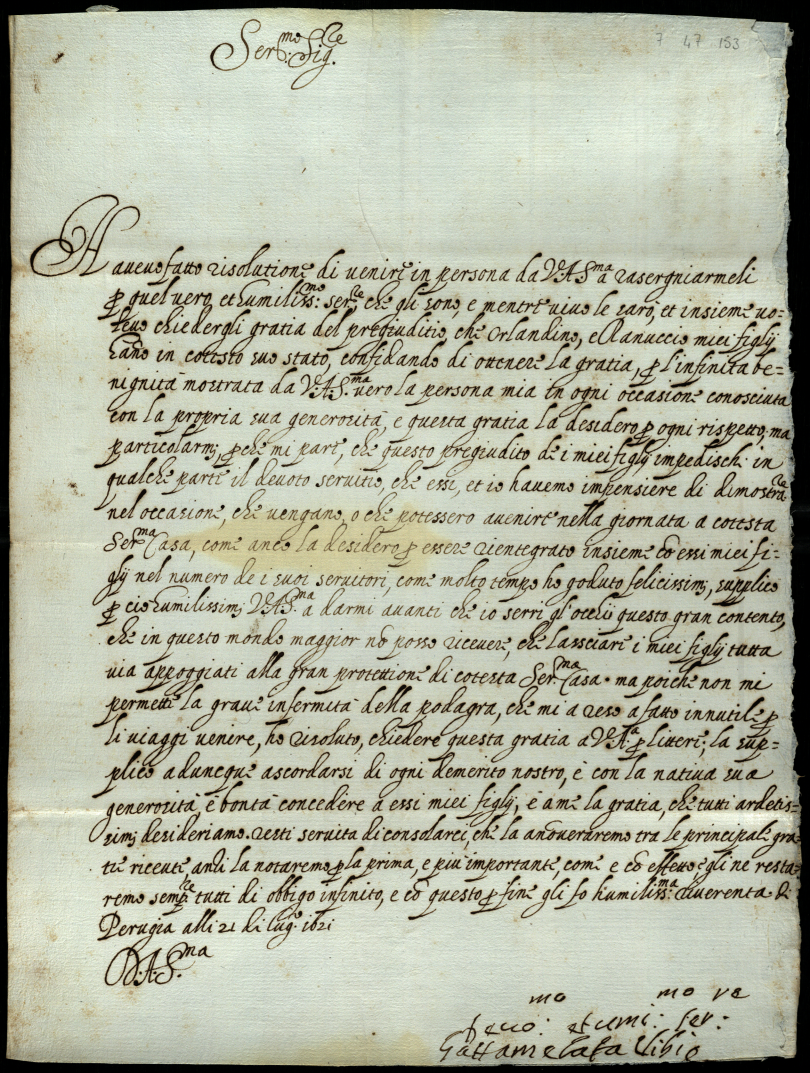 Ser.mo Sig.re
7 47 153
Havevo fatto risolutione di venire in persona da V.A.S.ma a rasergniarmeli
p quel vero, et humiliss:mo ser.re che gli sono, e mentre vivo le sarò, et insieme vo=
levo chiedergli gratia del pregiuditio, che Orlandino, e Ranuccio miei figlij
hanò in cotesto suo stato, confidando di ottenere la gratia, p l'infinita be=
nignità mostrata da V.A.S.ma verso la persona mia in ogni occasione conosciuta
con la propria sua generosità, e questa gratia la desidero p ogni rispetto, ma
particolarm; pche mi pare, che questo pregiudito de i miei figlij impedisch. in
qualche parte il devoto servitio, che essi, et io havemo impensiere di dimostrare
nel occasione, che vengano, o che potessero avenire nella giornata a cotesta
Ser.ma Casa, come anco la desidero p essere rientegrato insieme cò essi miei fi=
glij nel numero de i suoi servitori, come molto tempo ho goduto felicissim; supplico
p cio humilissim; V.A.S.ma a darmi avanti che io serri gl'occhi questo gran contento,
che in questo mondo maggior nò posso ricevere, che lassciare i miei figlij tutta
via appoggiati alla gran protettione di cotesta Ser.ma Casa. ma poiche non mi
permette la grave infermità della podagra, che mi a reso afatto innutile p
li viaggi venire, ho risoluto, chiedere questa gratia a V.A.a p littere; la sup=
plico adunque ascordarsi di ogni demerito nostro, e con la nativa sua
generosità, e bontà concedere a essi miei figlij, e a me la gratia, che tutti ardetis=
sim; desideriamo. resti servita di consolarci, che la anoveraremo tra le principale gra=
tie ricevute anzi la notaremo p la prima, e più importante, come e cò effetto e gli ne resta=
remo sempre tutti di obbigo infinito, e cò questo p fine gli fo humiliss:ma riverenta di
Perugia alli 21 di lug. 1621
D.V.A.S.ma
devo:mo etumi:mo ser:re
Gattamelata Vibio